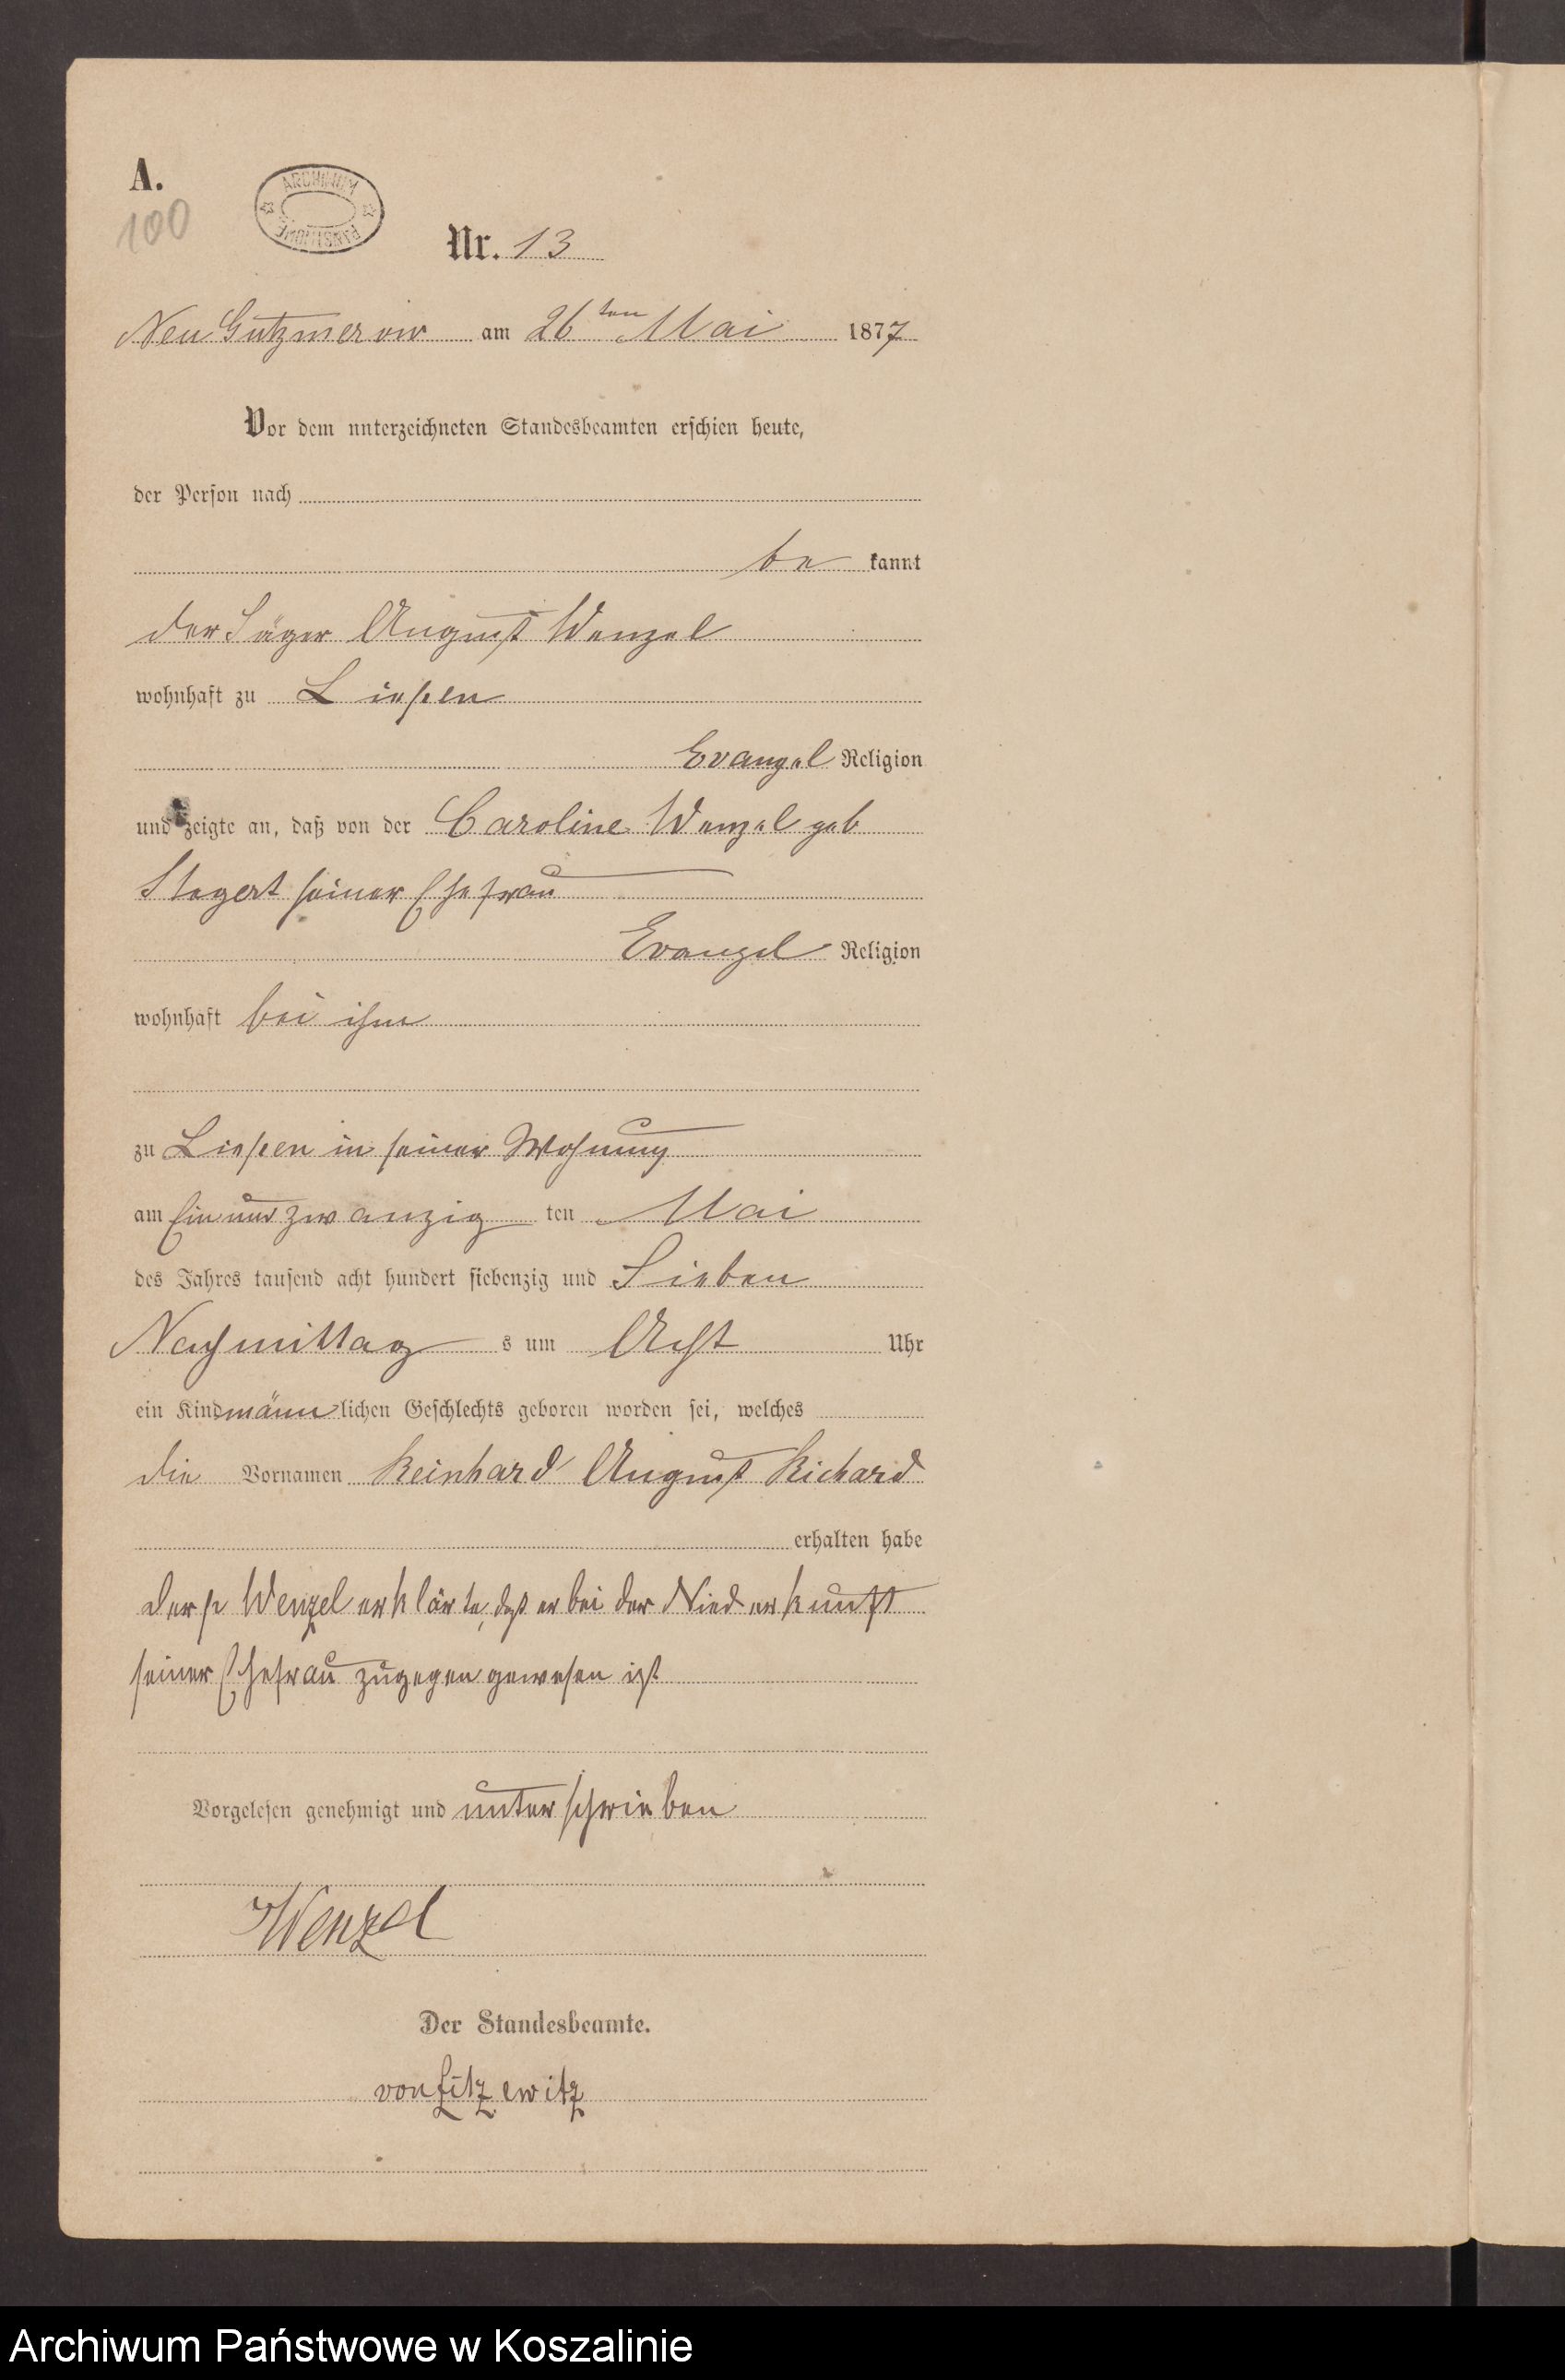 A.
100
ARCHIWUM
PAŃSTWOWE
Nr. 13
Neu Gutzmerow am 26ten Mai 1877
Vor dem unterzeichneten Standesbeamten erschien heute,
der Person nach
be kannt
der Jäger August Wenzel
wohnhaft zu Liepen
Evangel Religion
und zeigte an, daß von der Caroline Wenzel geb
Stegert seiner Ehefrau
Evangel Religion
wohnhaft bei ihm
zu Liepen in seiner Wohnung
am Ein und zwanzig ten Mai
des Jahres tausend acht hundert siebenzig und Sieben
Nachmittag s um Acht Uhr
ein Kind männ lichen Geschlechts geboren worden sei, welches
die Vornamen Reinhard August Richard
erhalten habe
Der p Wenzel erklärte, daß er bei der Niederkunft
seiner Ehefrau zugegen gewesen ist
Vorgelesen genehmigt und unterschrieben
Wenzel
Der Standesbeamte.
von Zitzewitz
Archiwum Państwowe w Koszalinie